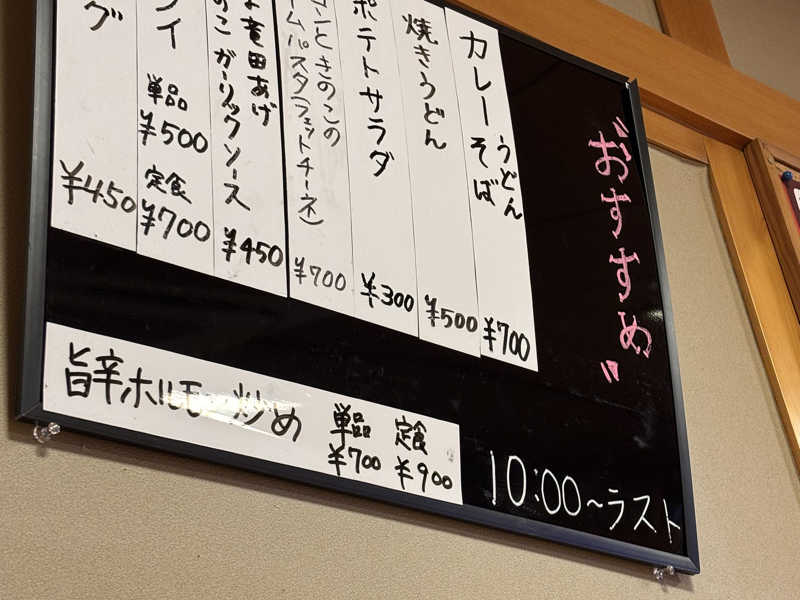 "おすすめ"
カレー うどん
そば
¥700
焼きうどん
¥500
ポテトサラダ
¥300
ときのこの
ームパスタ(フェットチーネ)
¥700
竜田あげ
のこ ガーリックソース
¥450
イ
単品
¥500
定食
¥700
グ
¥450
旨辛ホルモン炒め
単品 定食
¥700 ¥900
10:00~ラスト